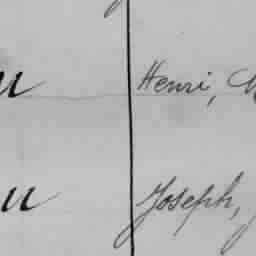 u Henri,
u Joseph,